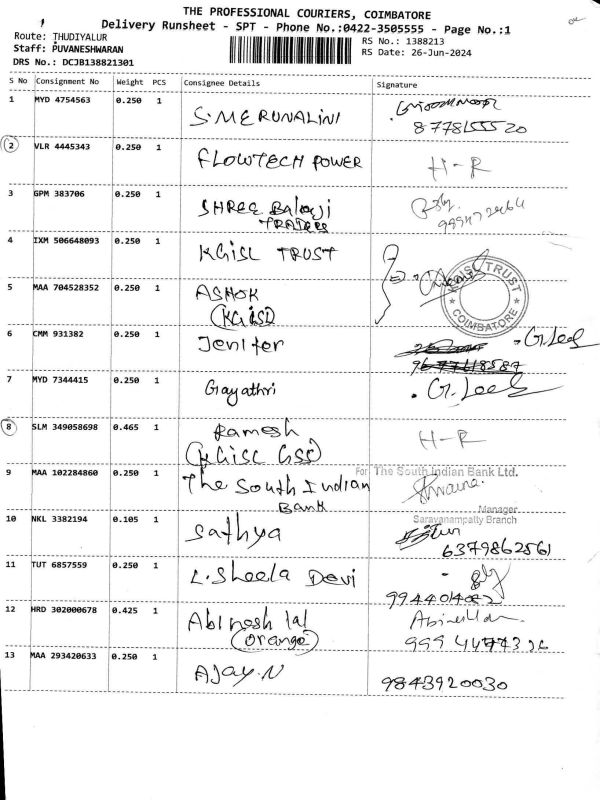 THE PROFESSIONAL COURIERS, COIMBATORE
Delivery Runsheet - SPT - Phone No.:0422-3505555 - Page No.:1
Route: THUDIYALUR
RS No.: 1388213
Staff: PUVANESHWARAN
RS Date: 26-Jun-2024
DRS No.: DCJB138821301
S No Consignment No Weight PCS Consignee Details Signature
1 MYD 4754563 0.250 1 S.MERUNALINI
8778155520
2 VLR 4445343 0.250 1 FLOWTECH POWER H-R
3 GPM 383706 0.250 1 SHREE Balaji
TRADERS
4 IXM 506648093 0.250 1 KGISL TRUST
KGISL TRUST
COIMBATORE
5 MAA 704528352 0.250 1 ASHOK
(KGISL)
6 CMM 931382 0.250 1 Jenifer
7 MYD 7344415 0.250 1 Gayathri
8 SLM 349058698 0.465 1 Ramesh H-R
(KGISL GSS)
9 MAA 102284860 0.250 1 The South Indian
Bank
For The South Indian Bank Ltd.
Manager
Saravanampatty Branch
10 NKL 3382194 0.105 1 Sathya
6379862561
11 TUT 6857559 0.250 1 L.Sheela Devi
12 HRD 302000678 0.425 1 Abinash lal
(orange)
13 MAA 293420633 0.250 1 AJay.N 9843920030